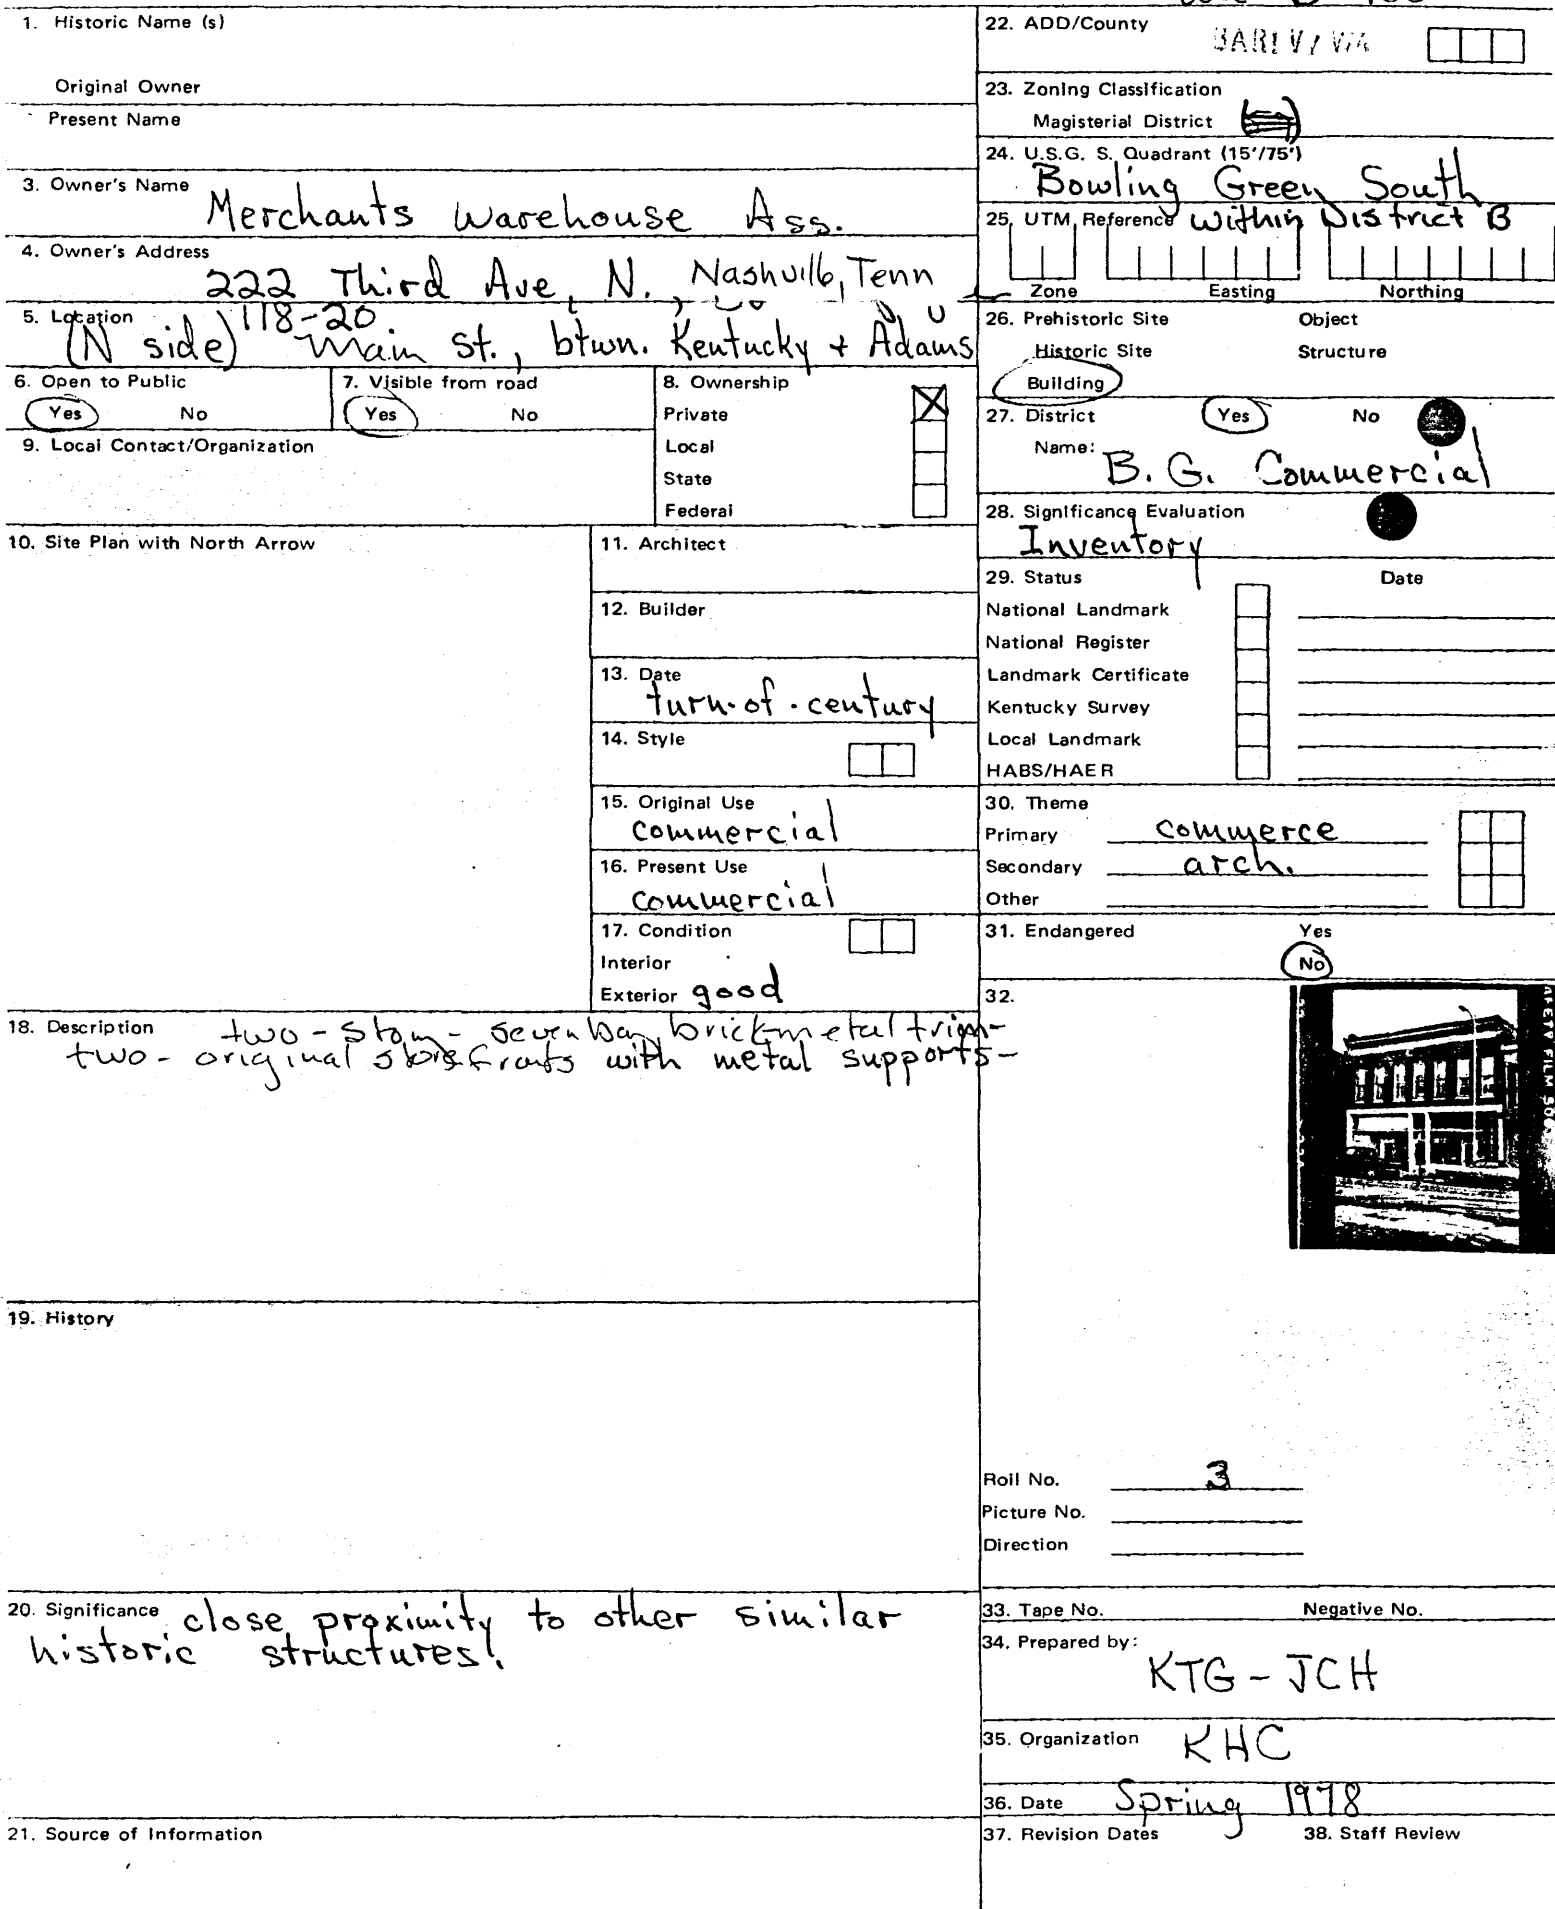 1. Historic Name (s)
Original Owner
Present Name
3. Owner's Name
Merchants Warehouse Ass.
4. Owner's Address
222 Third Ave, N., Nashville, Tenn
5. Location 118-20
(N side) Main St., btwn. Kentucky + Adams
6. Open to Public
Yes No
7. Visible from road
Yes No
8. Ownership
Private
Local
State
Federal
9. Local Contact/Organization
10. Site Plan with North Arrow
11. Architect
12. Builder
13. Date
turn-of-century
14. Style
15. Original Use
commercial
16. Present Use
commercial
17. Condition
Interior
Exterior good
18. Description two-story- seven bay brick-metal trim-
two-original storefronts with metal supports-
19. History
20. Significance close proximity to other similar
historic structures.
21. Source of Information
22. ADD/County
23. Zoning Classification
Magisterial District
24. U.S.G. S. Quadrant (15'/75')
Bowling Green South
25. UTM Reference within District B
Zone Easting Northing
26. Prehistoric Site Object
Historic Site Structure
Building
27. District Yes No
Name: B. G. Commercial
28. Significance Evaluation
Inventory
29. Status Date
National Landmark
National Register
Landmark Certificate
Kentucky Survey
Local Landmark
HABS/HAER
30. Theme
Primary commerce
Secondary arch.
Other
31. Endangered Yes
No
32.
Roll No. 3
Picture No.
Direction
33. Tape No. Negative No.
34. Prepared by:
KTG - JCH
35. Organization KHC
36. Date Spring 1978
37. Revision Dates 38. Staff Review